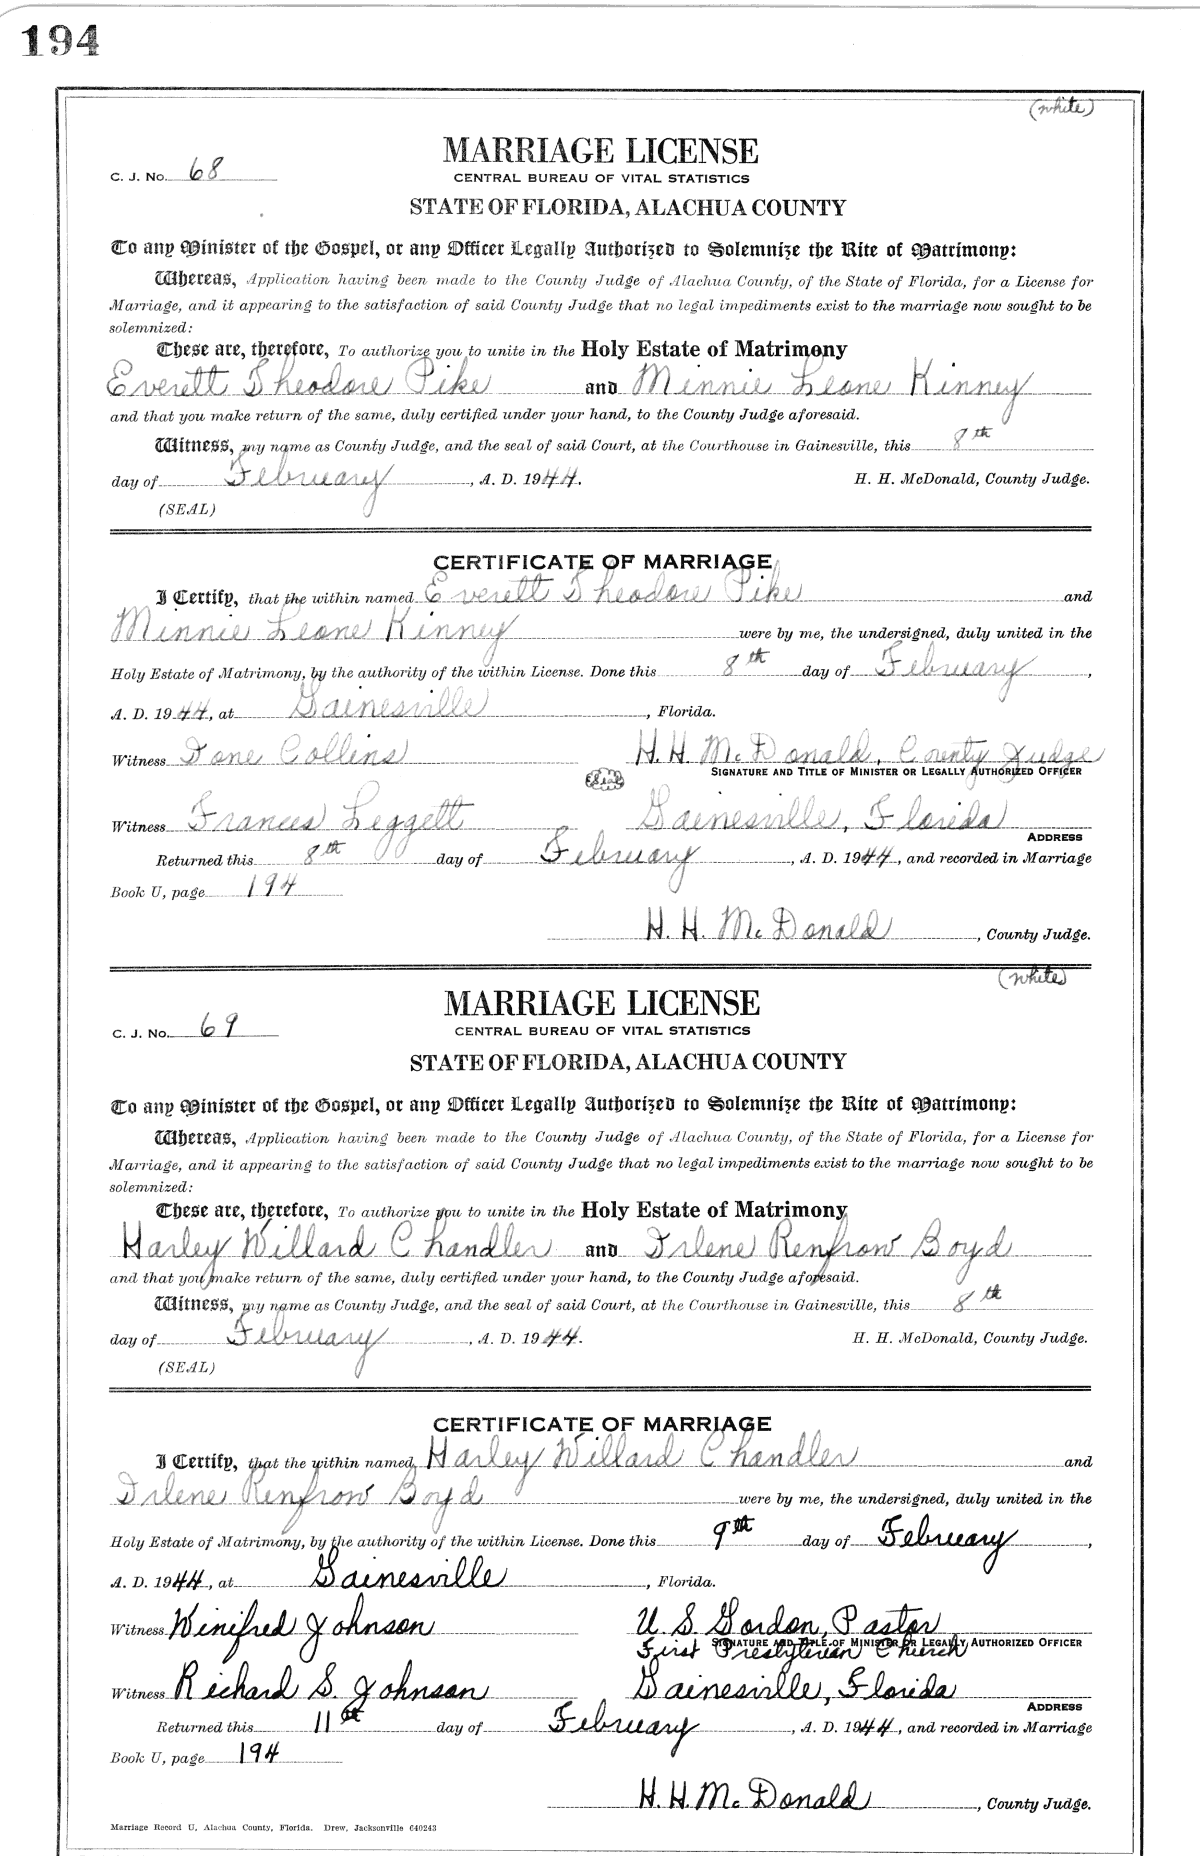 194
(white)
MARRIAGE LICENSE
C. J. No. 68
CENTRAL BUREAU OF VITAL STATISTICS
STATE OF FLORIDA, ALACHUA COUNTY
To any Minister of the Gospel, or any Officer Legally Authorized to Solemnize the Rite of Matrimony:
Whereas, Application having been made to the County Judge of Alachua County, of the State of Florida, for a License for
Marriage, and it appearing to the satisfaction of said County Judge that no legal impediments exist to the marriage now sought to be
solemnized:
These are, therefore, To authorize you to unite in the Holy Estate of Matrimony
Everett Theodore Pike and Minnie Leone Kinney
and that you make return of the same, duly certified under your hand, to the County Judge aforesaid.
Witness, my name as County Judge, and the seal of said Court, at the Courthouse in Gainesville, this 8th
day of February, A. D. 1944. H. H. McDonald, County Judge.
(SEAL)
CERTIFICATE OF MARRIAGE
I Certify, that the within named Everett Theodore Pike and
Minnie Leone Kinney were by me, the undersigned, duly united in the
Holy Estate of Matrimony, by the authority of the within License. Done this 8th day of February,
A. D. 1944, at Gainesville, Florida.
Witness Tone Collins H. H. McDonald, County Judge
(Seal) SIGNATURE AND TITLE OF MINISTER OR LEGALLY AUTHORIZED OFFICER
Witness Frances Leggett Gainesville, Florida
ADDRESS
Returned this 8th day of February, A. D. 1944, and recorded in Marriage
Book U, page 194
H. H. McDonald, County Judge.
(white)
MARRIAGE LICENSE
C. J. No. 69
CENTRAL BUREAU OF VITAL STATISTICS
STATE OF FLORIDA, ALACHUA COUNTY
To any Minister of the Gospel, or any Officer Legally Authorized to Solemnize the Rite of Matrimony:
Whereas, Application having been made to the County Judge of Alachua County, of the State of Florida, for a License for
Marriage, and it appearing to the satisfaction of said County Judge that no legal impediments exist to the marriage now sought to be
solemnized:
These are, therefore, To authorize you to unite in the Holy Estate of Matrimony
Harley Willard Chandler and Irlene Renfrow Boyd
and that you make return of the same, duly certified under your hand, to the County Judge aforesaid.
Witness, my name as County Judge, and the seal of said Court, at the Courthouse in Gainesville, this 8th
day of February, A. D. 1944. H. H. McDonald, County Judge.
(SEAL)
CERTIFICATE OF MARRIAGE
I Certify, that the within named Harley Willard Chandler and
Irlene Renfrow Boyd were by me, the undersigned, duly united in the
Holy Estate of Matrimony, by the authority of the within License. Done this 9th day of February,
A. D. 1944, at Gainesville, Florida.
Witness Winifred Johnson U. S. Gordon, Pastor
SIGNATURE AND TITLE OF MINISTER OR LEGALLY AUTHORIZED OFFICER
First Presbyterian Church
Witness Richard S. Johnson Gainesville, Florida
ADDRESS
Returned this 11th day of February, A. D. 1944, and recorded in Marriage
Book U, page 194
H. H. McDonald, County Judge.
Marriage Record U, Alachua County, Florida. Drew, Jacksonville 640243